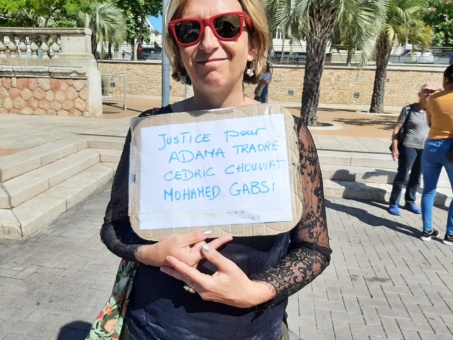 JUSTICE pour
ADAMA TRAORÉ
CEDRIC CHOUVIAT
MOHAMED GABSI